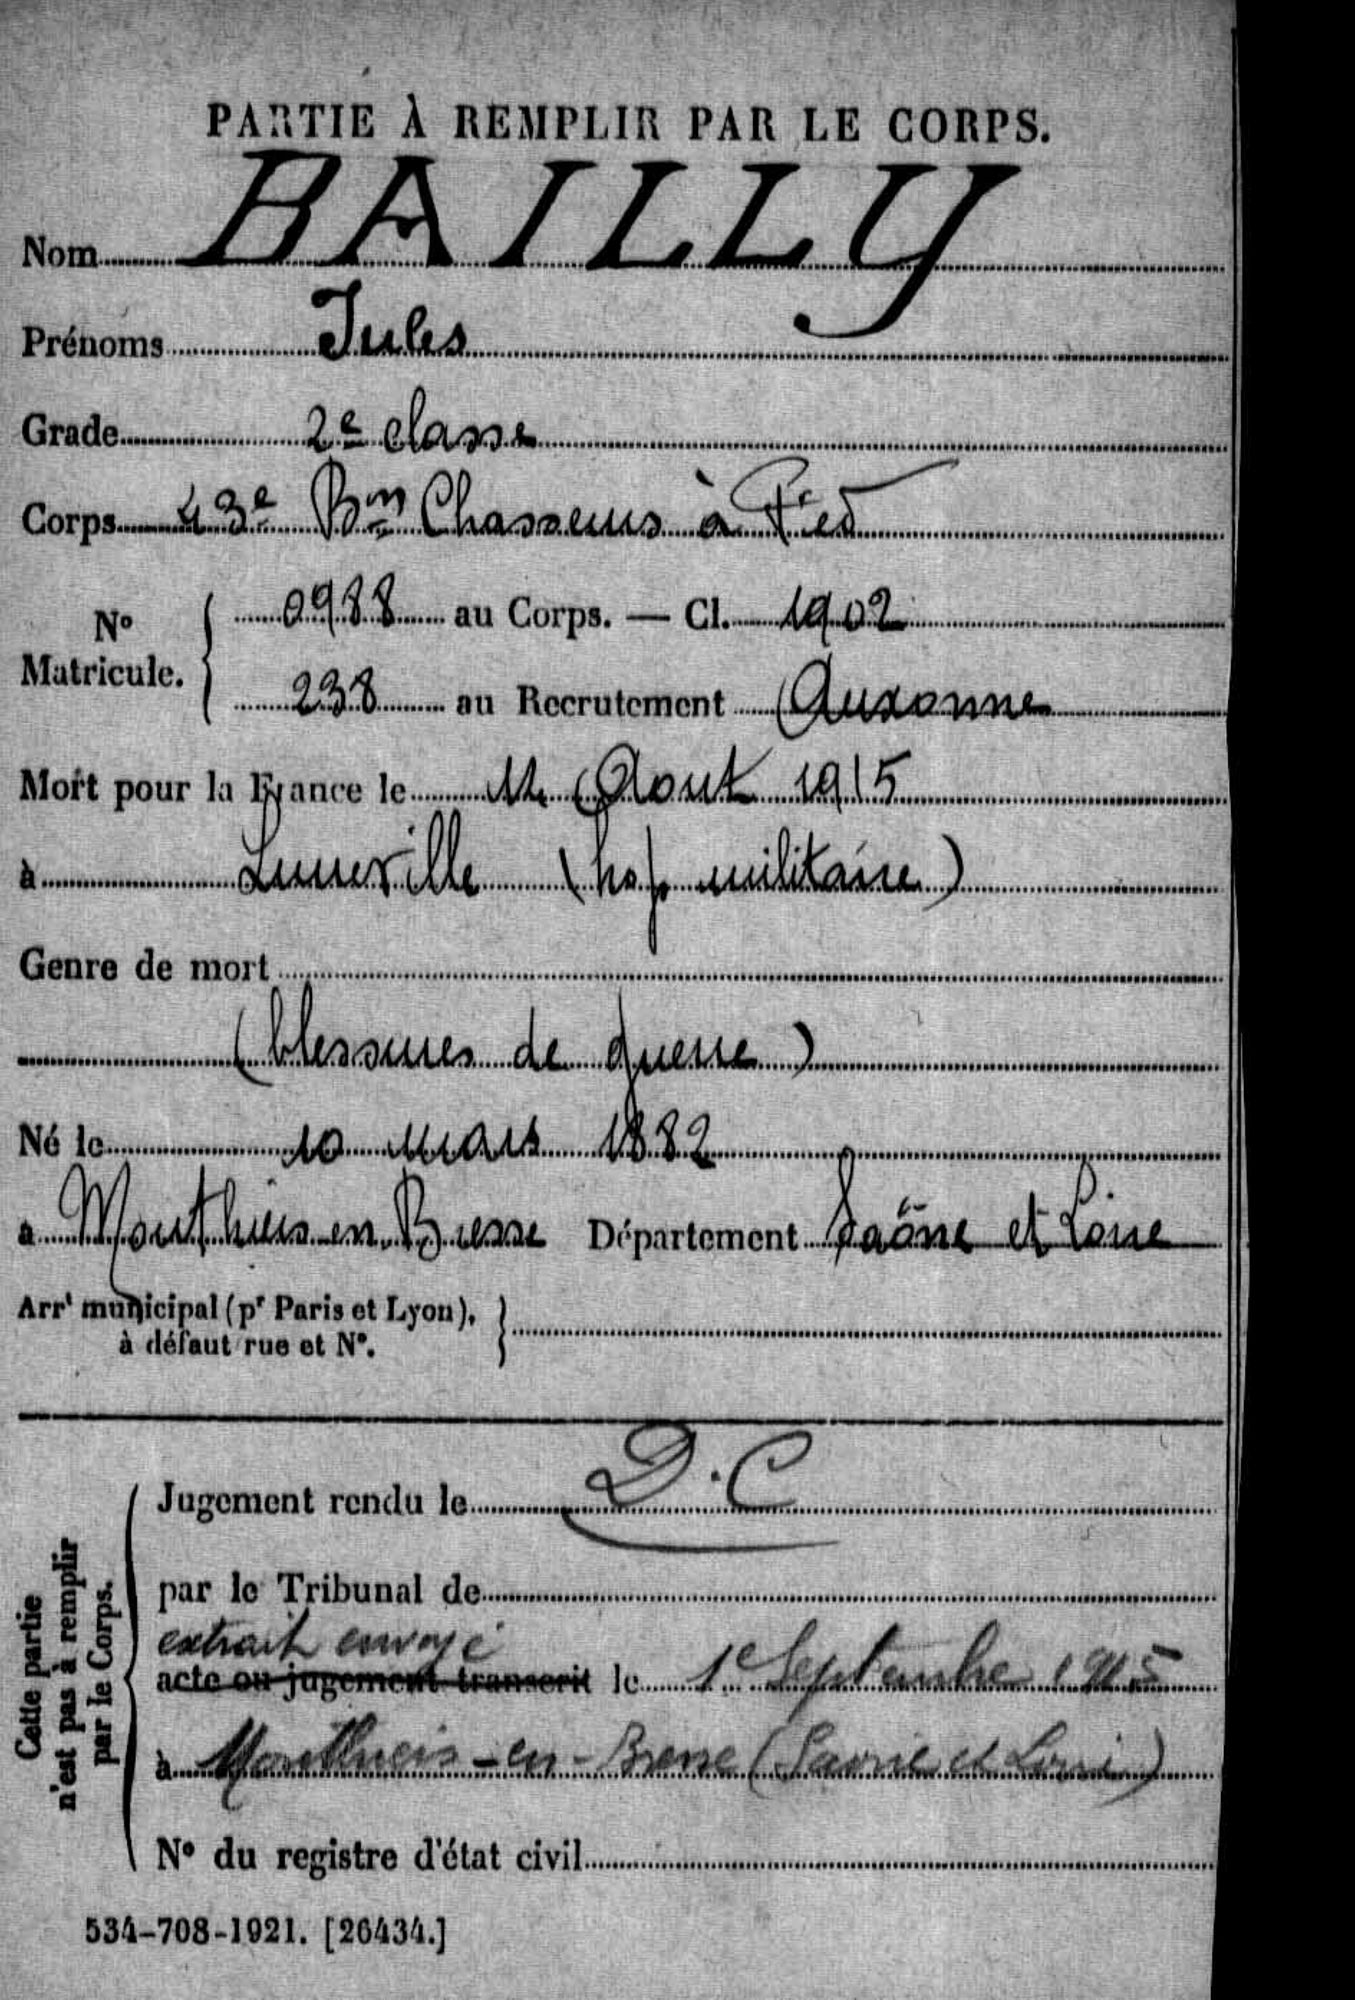 PARTIE À REMPLIR PAR LE CORPS.
Nom BAILLY
Prénoms Jules
Grade 2e classe
Corps 43e Bon Chasseurs à Pied
No Matricule. { 0988 au Corps. — Cl. 1902
238 au Recrutement Auxonne
Mort pour la France le 12 Aout 1915
à Luneville (hop militaire)
Genre de mort
(blessures de guerre)
Né le 10 mars 1882
à Monthiers en Bresse Département Saône et Loire
Arrt municipal (pr Paris et Lyon), à défaut rue et No. }
Cette partie n'est pas à remplir par le Corps.
Jugement rendu le D.C
par le Tribunal de
extrait envoyé
acte ou jugement transcrit le 1e Septembre 1915
à Monthieis-en-Bresse (Saone et Loire)
No du registre d'état civil
534-708-1921. [26434.]